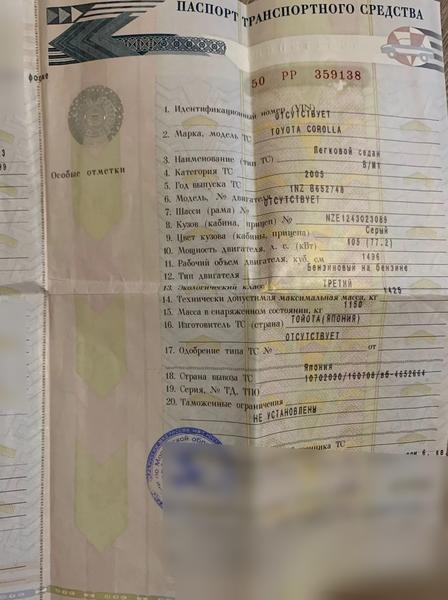 ПАСПОРТ ТРАНСПОРТНОГО СРЕДСТВА
50 РР 359138
Особые отметки
1. Идентификационный номер (VIN) ОТСУТСТВУЕТ
2. Марка, модель ТС TOYOTA COROLLA
3. Наименование (тип ТС) Легковой седан
4. Категория ТС B/МТ
5. Год выпуска ТС 2005
6. Модель, № двигателя 1NZ B652748
7. Шасси (рама) № ОТСУТСТВУЕТ
8. Кузов (кабина, прицеп) № NZE1243023089
9. Цвет кузова (кабины, прицепа) Серый
10. Мощность двигателя, л. с. (кВт) 105 (77.2)
11. Рабочий объем двигателя, куб. см 1496
12. Тип двигателя Бензиновый на бензине
13. Экологический класс ТРЕТИЙ
14. Технически допустимая максимальная масса, кг 1425
15. Масса в снаряженном состоянии, кг 1150
16. Изготовитель ТС (страна) ТОЙОТА(ЯПОНИЯ)
ОТСУТСТВУЕТ
17. Одобрение типа ТС № от
18. Страна вывоза ТС Япония
19. Серия, № ТД, ТПО
20. Таможенные ограничения НЕ УСТАНОВЛЕНЫ
ТС